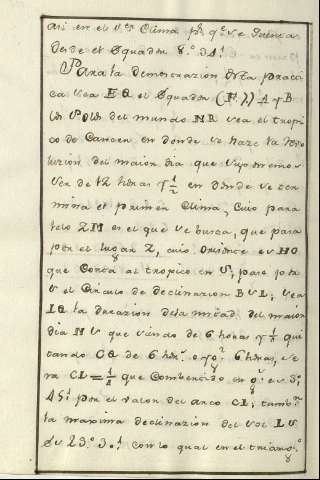 asi en el Clima
desde el Equador 8.° 34.'
Para la demonstracion desta practi
ca sea EQ el Equador (F. ) A y B
los Polos del mundo NR sea el tropi
co de Cancer en donde se haze la
del maior dia que supo
ser de 12 horas y 1/2 en donde se ter
mina el primer Clima, cuio para
lelo ZM es el que se busca, que pasa
por el lugar Z, cuio Orizonte es HO
que corta al tropico en S, pase por
S el Circulo de declinacion BSL, sea
LQ la duracion dela mitad del maior
dia NS que siendo de 6 horas y 1/4 qui
tando CQ de 6 hor.s o 90.° 6 horas, se
ra CL = 1/4 que combertido en g.s es 3.°
45.' por el valor del arco CL; tamb.n
la maxima declinacion del Sol LS
de 23.° 30.' con lo qual en el triang.o